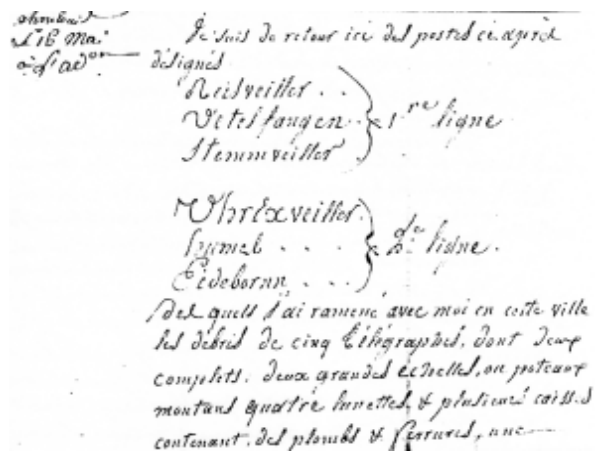 le 16 Mai
Je suis de retour ici des postes ci après
désignés
Reisveiller . .
Vetelfaugen . . 1.re ligne
Stemmveiller
Uhrexveiller.
Hymel . . . . 2.de ligne.
Eidebornn . . .
Des quels j'ai ramené avec moi en cette ville
les débris de cinq Télégraphes, dont deux
complets. deux grandes échelles, ou poteaux
montans quatre lunettes, & plusieurs caisses
contenant, des plombs & ferrures, une